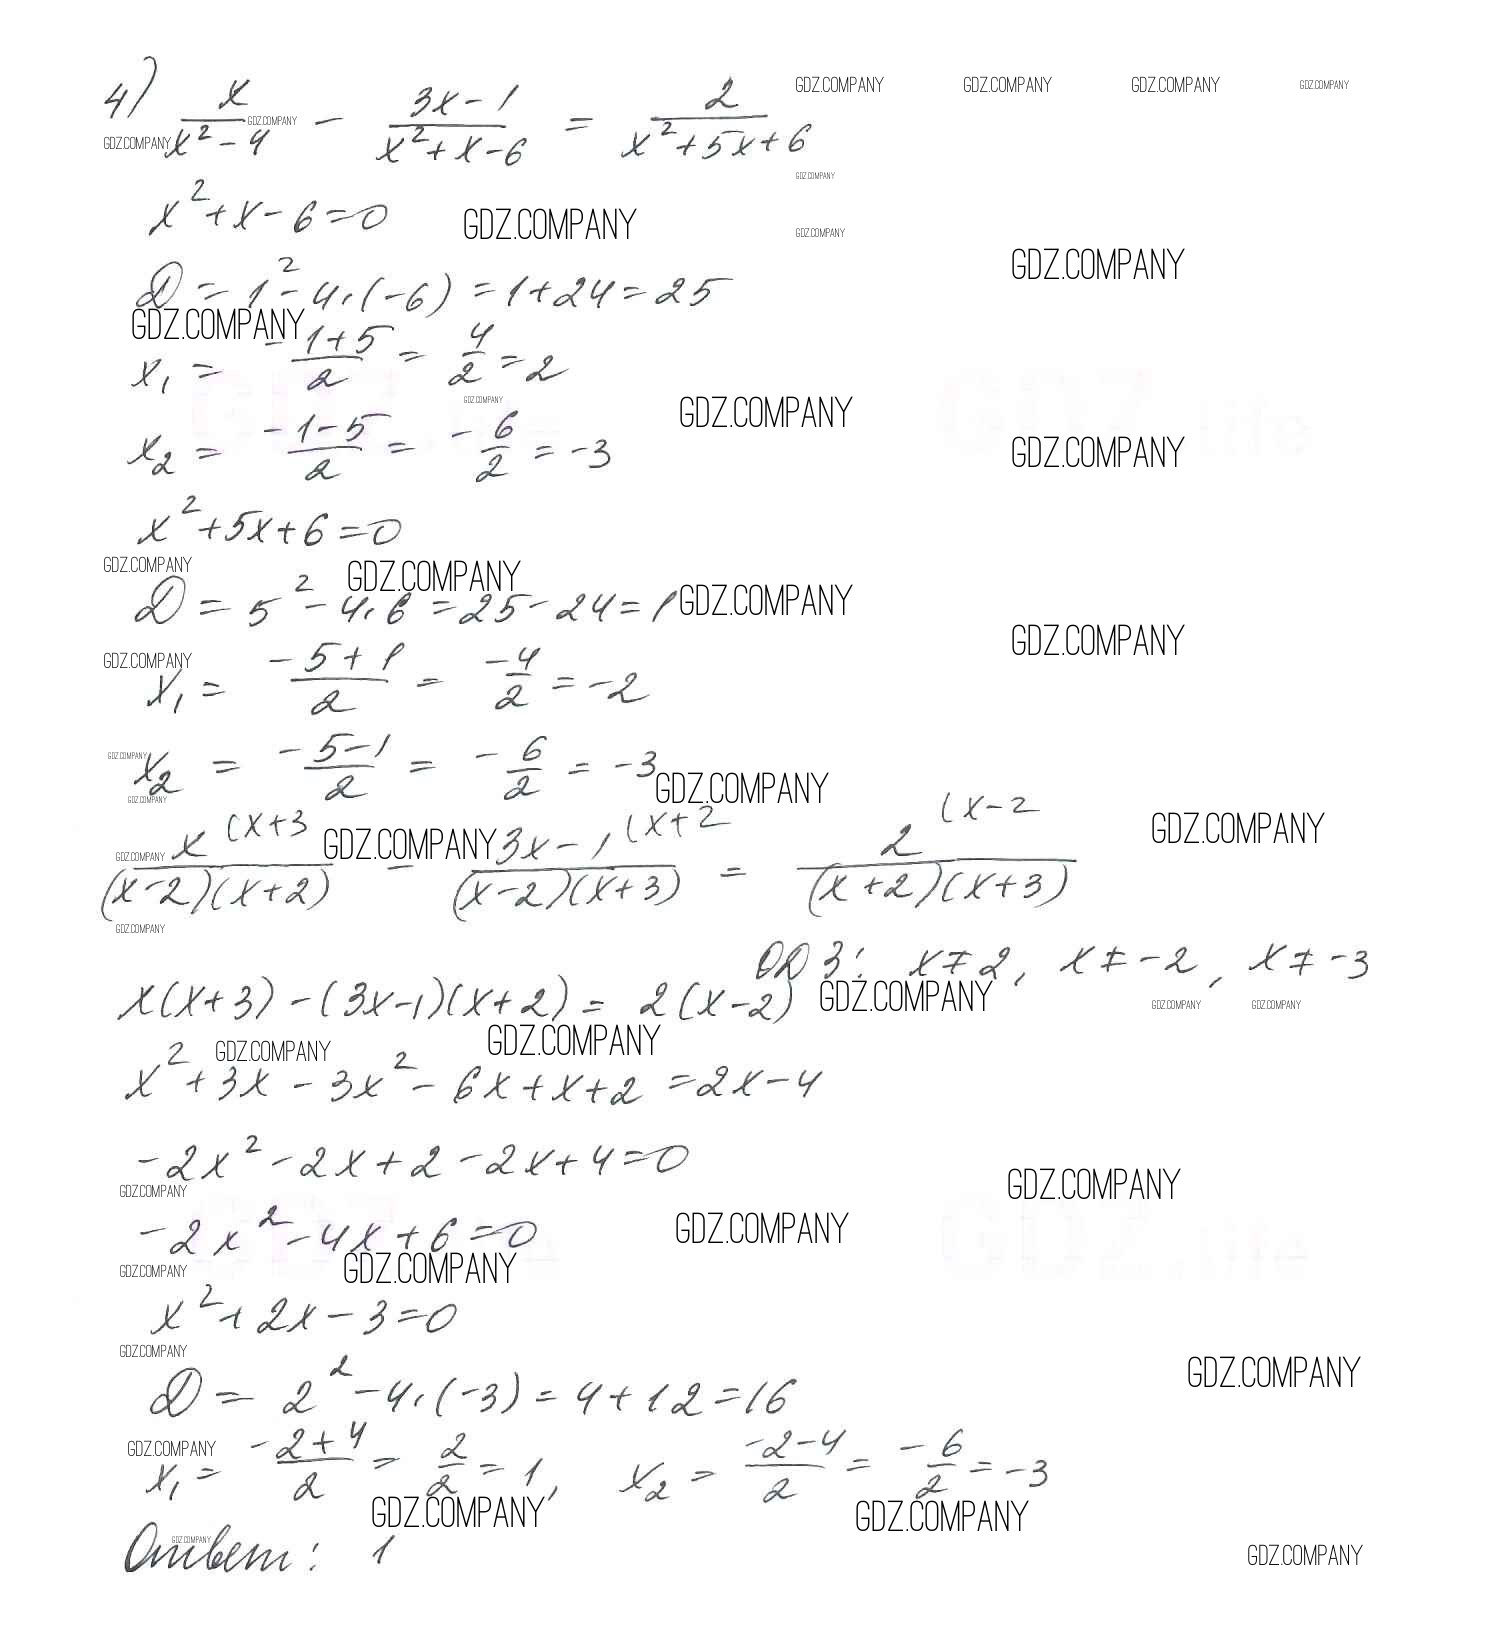 4) x/(x²-4) - (3x-1)/(x²+x-6) = 2/(x²+5x+6)
GDZ.COMPANY GDZ.COMPANY GDZ.COMPANY GDZ.COMPANY
GDZ.COMPANY GDZ.COMPANY
GDZ.COMPANY
x²+x-6=0 GDZ.COMPANY GDZ.COMPANY
GDZ.COMPANY
D = 1²-4·(-6) = 1+24 = 25
GDZ.COMPANY
x₁ = (-1+5)/2 = 4/2 = 2
GDZ.COMPANY GDZ.COMPANY
x₂ = (-1-5)/2 = -6/2 = -3 GDZ.COMPANY
x²+5x+6=0
GDZ.COMPANY GDZ.COMPANY
D = 5²-4·6 = 25-24 = 1 GDZ.COMPANY
GDZ.COMPANY
GDZ.COMPANY
x₁ = (-5+1)/2 = -4/2 = -2
GDZ.COMPANY
x₂ = (-5-1)/2 = -6/2 = -3
GDZ.COMPANY GDZ.COMPANY
x (x+3 / (x-2)(x+2) - 3x-1 (x+2 / (x-2)(x+3) = 2 (x-2 / (x+2)(x+3)
GDZ.COMPANY GDZ.COMPANY GDZ.COMPANY
GDZ.COMPANY
ОДЗ: x≠2, x≠-2, x≠-3
x(x+3)-(3x-1)(x+2) = 2(x-2) GDZ.COMPANY GDZ.COMPANY GDZ.COMPANY
GDZ.COMPANY GDZ.COMPANY
x²+3x-3x²-6x+x+2 = 2x-4
-2x²-2x+2-2x+4=0
GDZ.COMPANY GDZ.COMPANY
-2x²-4x+6=0 GDZ.COMPANY
GDZ.COMPANY GDZ.COMPANY
x²+2x-3=0
GDZ.COMPANY GDZ.COMPANY
D = 2²-4·(-3) = 4+12 = 16
GDZ.COMPANY
x₁ = (-2+4)/2 = 2/2 = 1, x₂ = (-2-4)/2 = -6/2 = -3
GDZ.COMPANY GDZ.COMPANY
GDZ.COMPANY
Ответ: 1 GDZ.COMPANY